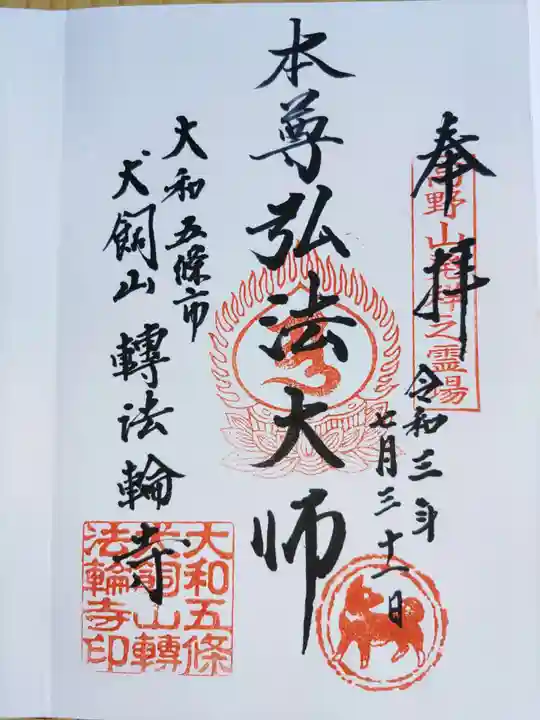 奉拝
高野山発祥之霊場
令和三年
七月三十一日
本尊弘法大師
大和五條市
犬飼山 轉法輪寺
大和五條
犬飼山轉
法輪寺印